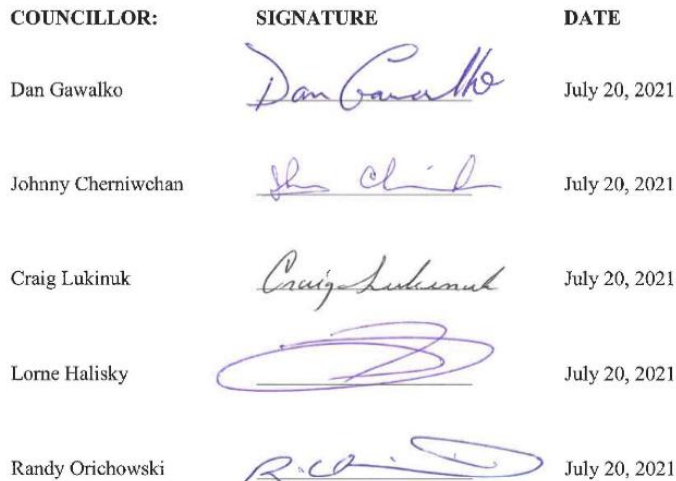 COUNCILLOR: SIGNATURE DATE
Dan Gawalko Dan Gawalko July 20, 2021
Johnny Cherniwchan July 20, 2021
Craig Lukinuk Craig Lukinuk July 20, 2021
Lorne Halisky July 20, 2021
Randy Orichowski July 20, 2021